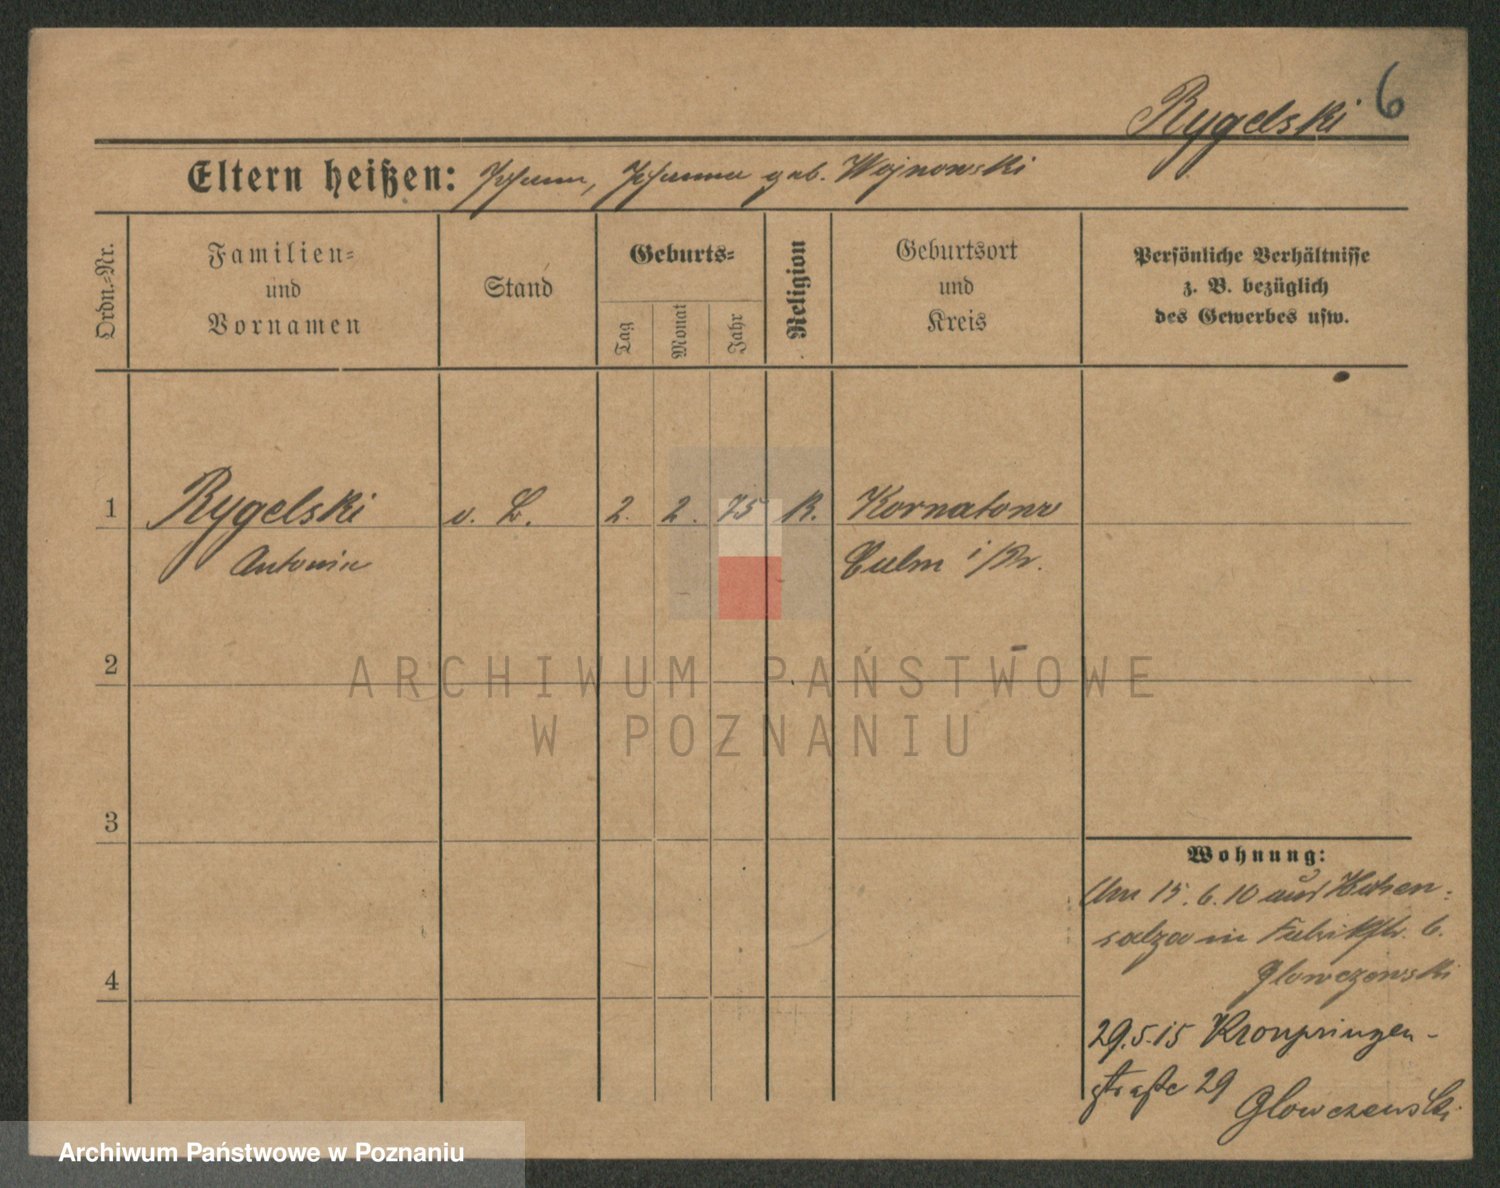 Rygelski 6
Eltern heißen: Johann, Johanna geb. Wojnowski
Ordn.-Nr.
Familien-
und
Vornamen
Stand
Geburts-
Tag
Monat
Jahr
Religion
Geburtsort
und
Kreis
Persönliche Verhältnisse
z. B. bezüglich
des Gewerbes usw.
1 Rygelski v. L. 2. 2. 75 R. Kornatowo
Antonie Culm i/Pr.
2
ARCHIWUM PAŃSTWOWE
W POZNANIU
3
Wohnung:
Am 15.6.10 aus Hohen-
salza in Fabrikstr. 6.
Glowczewski
4
29.5.15 Kronprinzen-
straße 29
Glowczewski
Archiwum Państwowe w Poznaniu